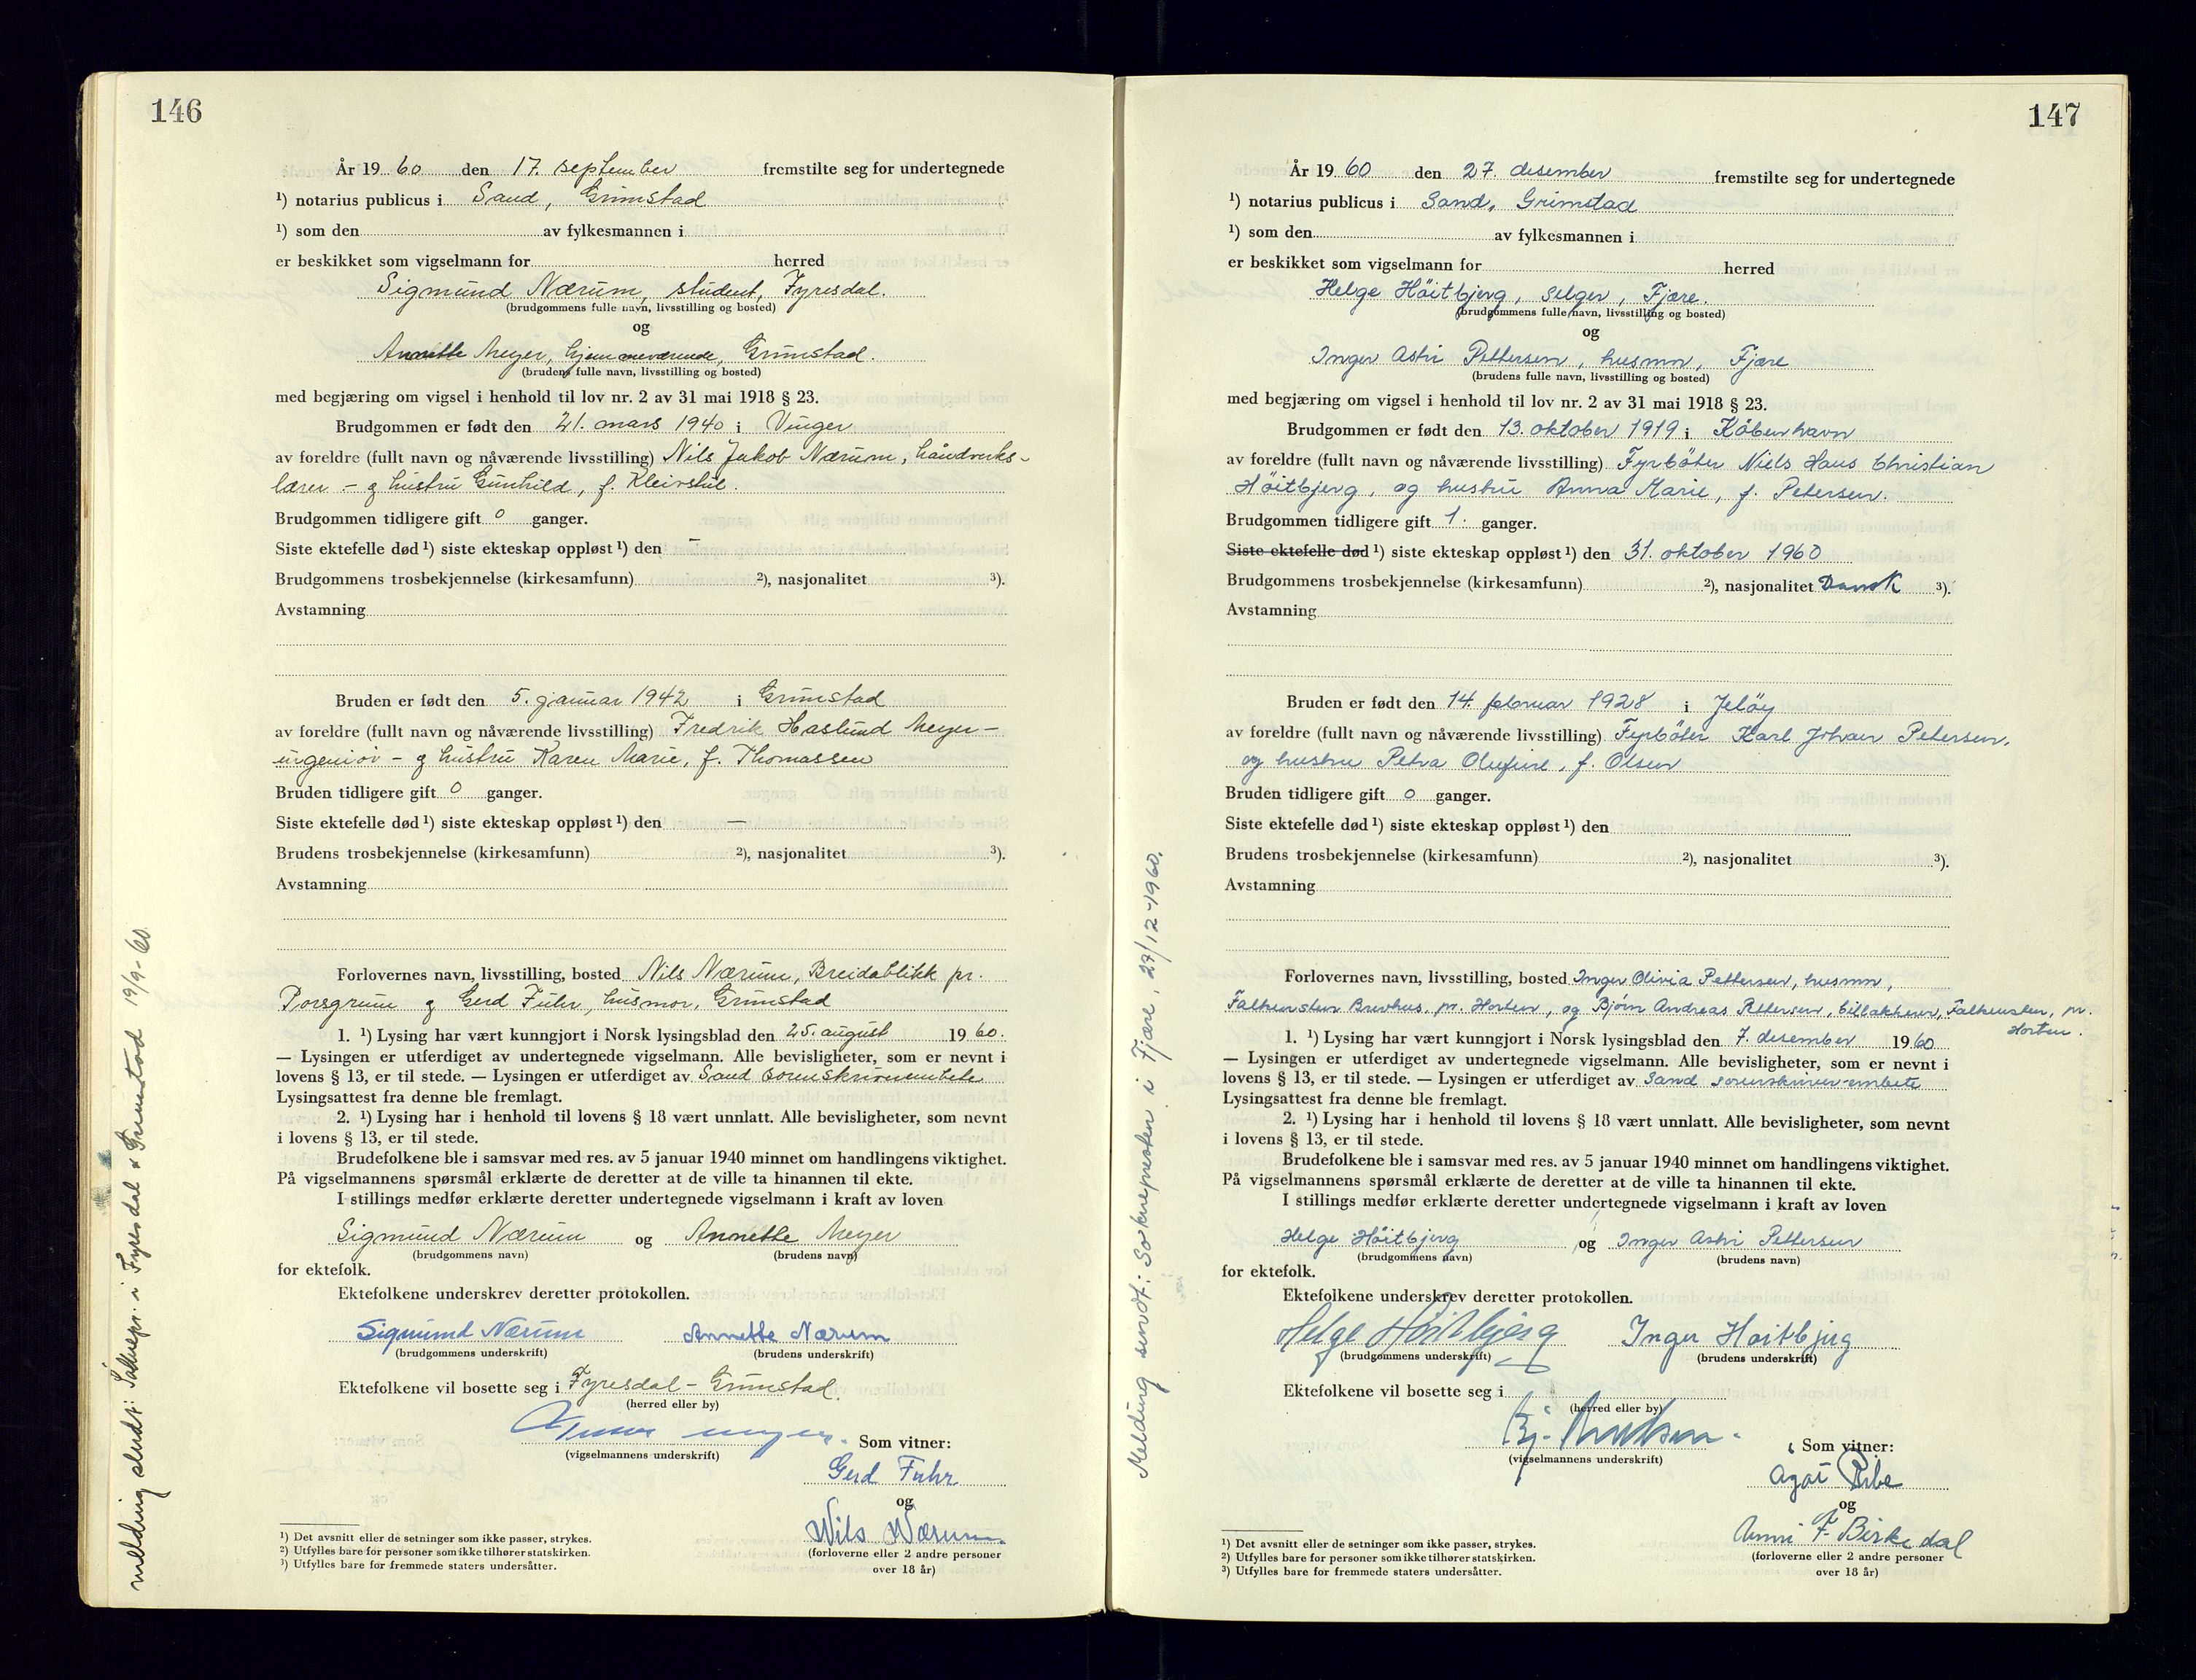 146
År 19 60 den 17. september fremstilte seg for undertegnede
¹) notarius publicus i Sand, Grimstad
¹) som den av fylkesmannen i
er beskikket som vigselmann for herred
Sigmund Nærum, student, Fyresdal.
(brudgommens fulle navn, livsstilling og bosted)
og
Annette Meyer, hjemmeværende, Grimstad.
(brudens fulle navn, livsstilling og bosted)
med begjæring om vigsel i henhold til lov nr. 2 av 31 mai 1918 § 23.
Brudgommen er født den 21. mars 1940 i Vinger
av foreldre (fullt navn og nåværende livsstilling) Nils Jakob Nærum, håndverks-
lærer - og hustru Gunhild, f. Kleivstul.
Brudgommen tidligere gift 0 ganger.
Siste ektefelle død ¹) siste ekteskap oppløst ¹) den –
Brudgommens trosbekjennelse (kirkesamfunn) ²), nasjonalitet ³).
Avstamning
Bruden er født den 5. januar 1942 i Grimstad
av foreldre (fullt navn og nåværende livsstilling) Fredrik Haslund Meyer -
ingeniør - og hustru Karen Marie, f. Thomassen
Bruden tidligere gift 0 ganger.
Siste ektefelle død ¹) siste ekteskap oppløst ¹) den —
Brudens trosbekjennelse (kirkesamfunn) ²), nasjonalitet ³).
Avstamning
Forlovernes navn, livsstilling, bosted Nils Nærum, Breidablikk pr.
Porsgrunn og Gerd Fuhr, husmor, Grimstad
1. ¹) Lysing har vært kunngjort i Norsk lysingsblad den 25. august 19 60.
— Lysingen er utferdiget av undertegnede vigselmann. Alle bevisligheter, som er nevnt i
lovens § 13, er til stede. — Lysingen er utferdiget av Sand sorenskriverembete
Lysingsattest fra denne ble fremlagt.
2. ¹) Lysing har i henhold til lovens § 18 vært unnlatt. Alle bevisligheter, som nevnt
i lovens § 13, er til stede.
Brudefolkene ble i samsvar med res. av 5 januar 1940 minnet om handlingens viktighet.
På vigselmannens spørsmål erklærte de deretter at de ville ta hinannen til ekte.
I stillings medfør erklærte deretter undertegnede vigselmann i kraft av loven
Sigmund Nærum og Annette Meyer
(brudgommens navn) (brudens navn)
for ektefolk.
Ektefolkene underskrev deretter protokollen.
Sigmund Nærum Annette Nærum
(brudgommens underskrift) (brudens underskrift)
Ektefolkene vil bosette seg i Fyresdal - Grimstad.
(herred eller by)
Som vitner:
(vigselmannens underskrift)
Gerd Fuhr
og
Nils Nærum
(forloverne eller 2 andre personer
over 18 år)
¹) Det avsnitt eller de setninger som ikke passer, strykes.
²) Utfylles bare for personer som ikke tilhører statskirken.
³) Utfylles bare for fremmede staters undersåtter.
melding sendt: Soknepr. i Fyresdal & Grimstad 19/9-60.
147
År 19 60 den 27. desember fremstilte seg for undertegnede
¹) notarius publicus i Sand, Grimstad
¹) som den av fylkesmannen i
er beskikket som vigselmann for herred
Helge Höitbjerg, selger, Fjære.
(brudgommens fulle navn, livsstilling og bosted)
og
Inger Astri Pettersen, husmor, Fjære
(brudens fulle navn, livsstilling og bosted)
med begjæring om vigsel i henhold til lov nr. 2 av 31 mai 1918 § 23.
Brudgommen er født den 13. oktober 1919 i Köbenhavn
av foreldre (fullt navn og nåværende livsstilling) Fyrböter Niels Hans Christian
Höitbjerg, og hustru Anna Marie, f. Petersen.
Brudgommen tidligere gift 1. ganger.
Siste ektefelle død ¹) siste ekteskap oppløst ¹) den 31. oktober 1960
Brudgommens trosbekjennelse (kirkesamfunn) ²), nasjonalitet Dansk ³).
Avstamning
Bruden er født den 14. februar 1928 i Jelöy
av foreldre (fullt navn og nåværende livsstilling) Fyrböter Karl Johan Petersen,
og hustru Petra Olufine, f. Olsen
Bruden tidligere gift 0 ganger.
Siste ektefelle død ¹) siste ekteskap oppløst ¹) den
Brudens trosbekjennelse (kirkesamfunn) ²), nasjonalitet ³).
Avstamning
Forlovernes navn, livsstilling, bosted Inger Olivia Pettersen, husmor,
Falkensten Brevhus, pr. Horten, og Bjørn Andreas Pettersen, billakkerer, Falkensten, pr.
Horten.
1. ¹) Lysing har vært kunngjort i Norsk lysingsblad den 7. desember 19 60
— Lysingen er utferdiget av undertegnede vigselmann. Alle bevisligheter, som er nevnt i
lovens § 13, er til stede. — Lysingen er utferdiget av Sand sorenskriver-embete
Lysingsattest fra denne ble fremlagt.
2. ¹) Lysing har i henhold til lovens § 18 vært unnlatt. Alle bevisligheter, som nevnt
i lovens § 13, er til stede.
Brudefolkene ble i samsvar med res. av 5 januar 1940 minnet om handlingens viktighet.
På vigselmannens spørsmål erklærte de deretter at de ville ta hinannen til ekte.
I stillings medfør erklærte deretter undertegnede vigselmann i kraft av loven
Helge Höitbjerg og Inger Astri Pettersen
(brudgommens navn) (brudens navn)
for ektefolk.
Ektefolkene underskrev deretter protokollen.
Helge Höitbjerg Inger Høitbjerg
(brudgommens underskrift) (brudens underskrift)
Ektefolkene vil bosette seg i
(herred eller by)
Bj. Som vitner:
(vigselmannens underskrift)
Agot Ribe
og
Anni F. Birkedal
(forloverne eller 2 andre personer
over 18 år)
¹) Det avsnitt eller de setninger som ikke passer, strykes.
²) Utfylles bare for personer som ikke tilhører statskirken.
³) Utfylles bare for fremmede staters undersåtter.
Melding sendt: Soknepresten i Fjære, 27/12-1960.